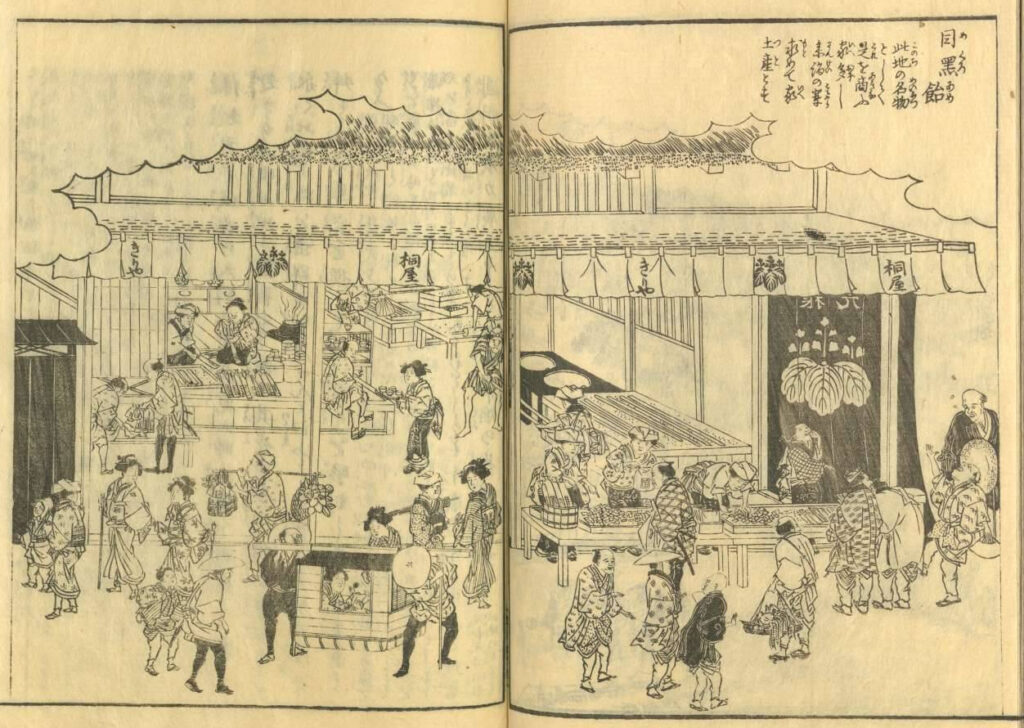 目黒飴
めぐろあめ
此地の名物
として
是を商ふ
家多し
参詣の輩
求めて家
土産とす
桐屋
きりや
桐屋
きりや